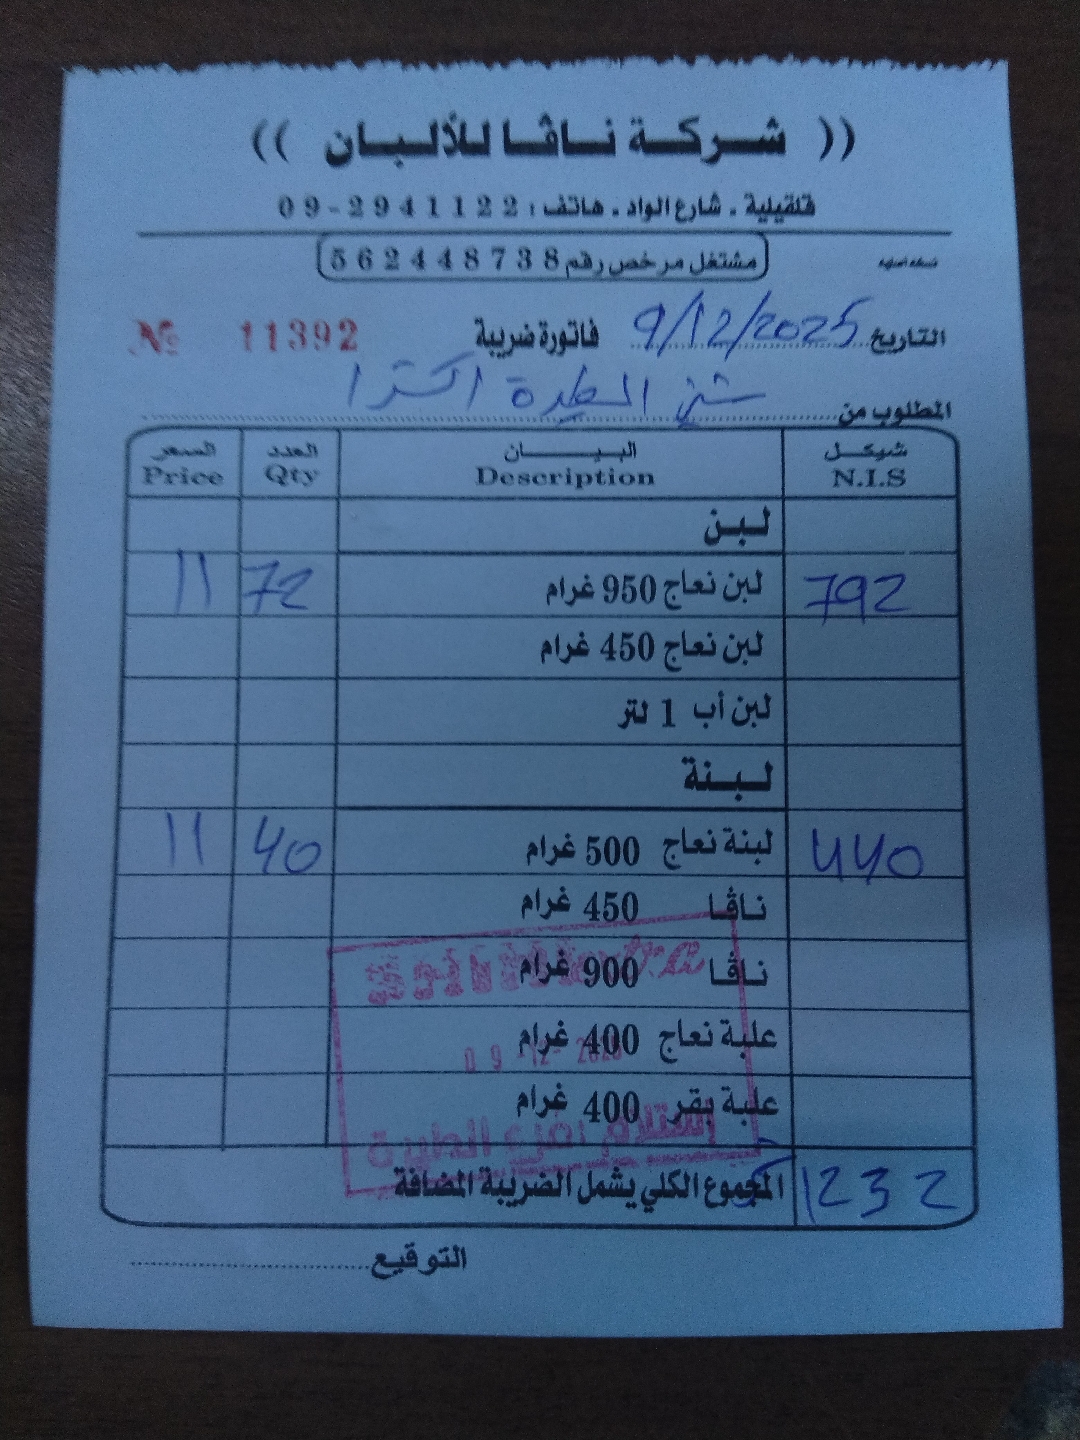 (( شركة ناڤا للألبان ))
قلقيلية . شارع الواد . هاتف : 2941122-09
مشتغل مرخص رقم 562448738
التاريخ 9/12/2025 فاتورة ضريبة 11392 №
المطلوب من الطيرة اكسترا
شيكل البيـــان العدد السعر
N.I.S Description Qty Price
لبن
792 لبن نعاج 950 غرام 72 11
لبن نعاج 450 غرام
لبن أب 1 لتر
لبنة
440 لبنة نعاج 500 غرام 40 11
ناڤا 450 غرام
ناڤا 900 غرام
علبة نعاج 400 غرام
علبة بقر 400 غرام
إستلام فرع الطيرة
1232 المجموع الكلي يشمل الضريبة المضافة
التوقيع